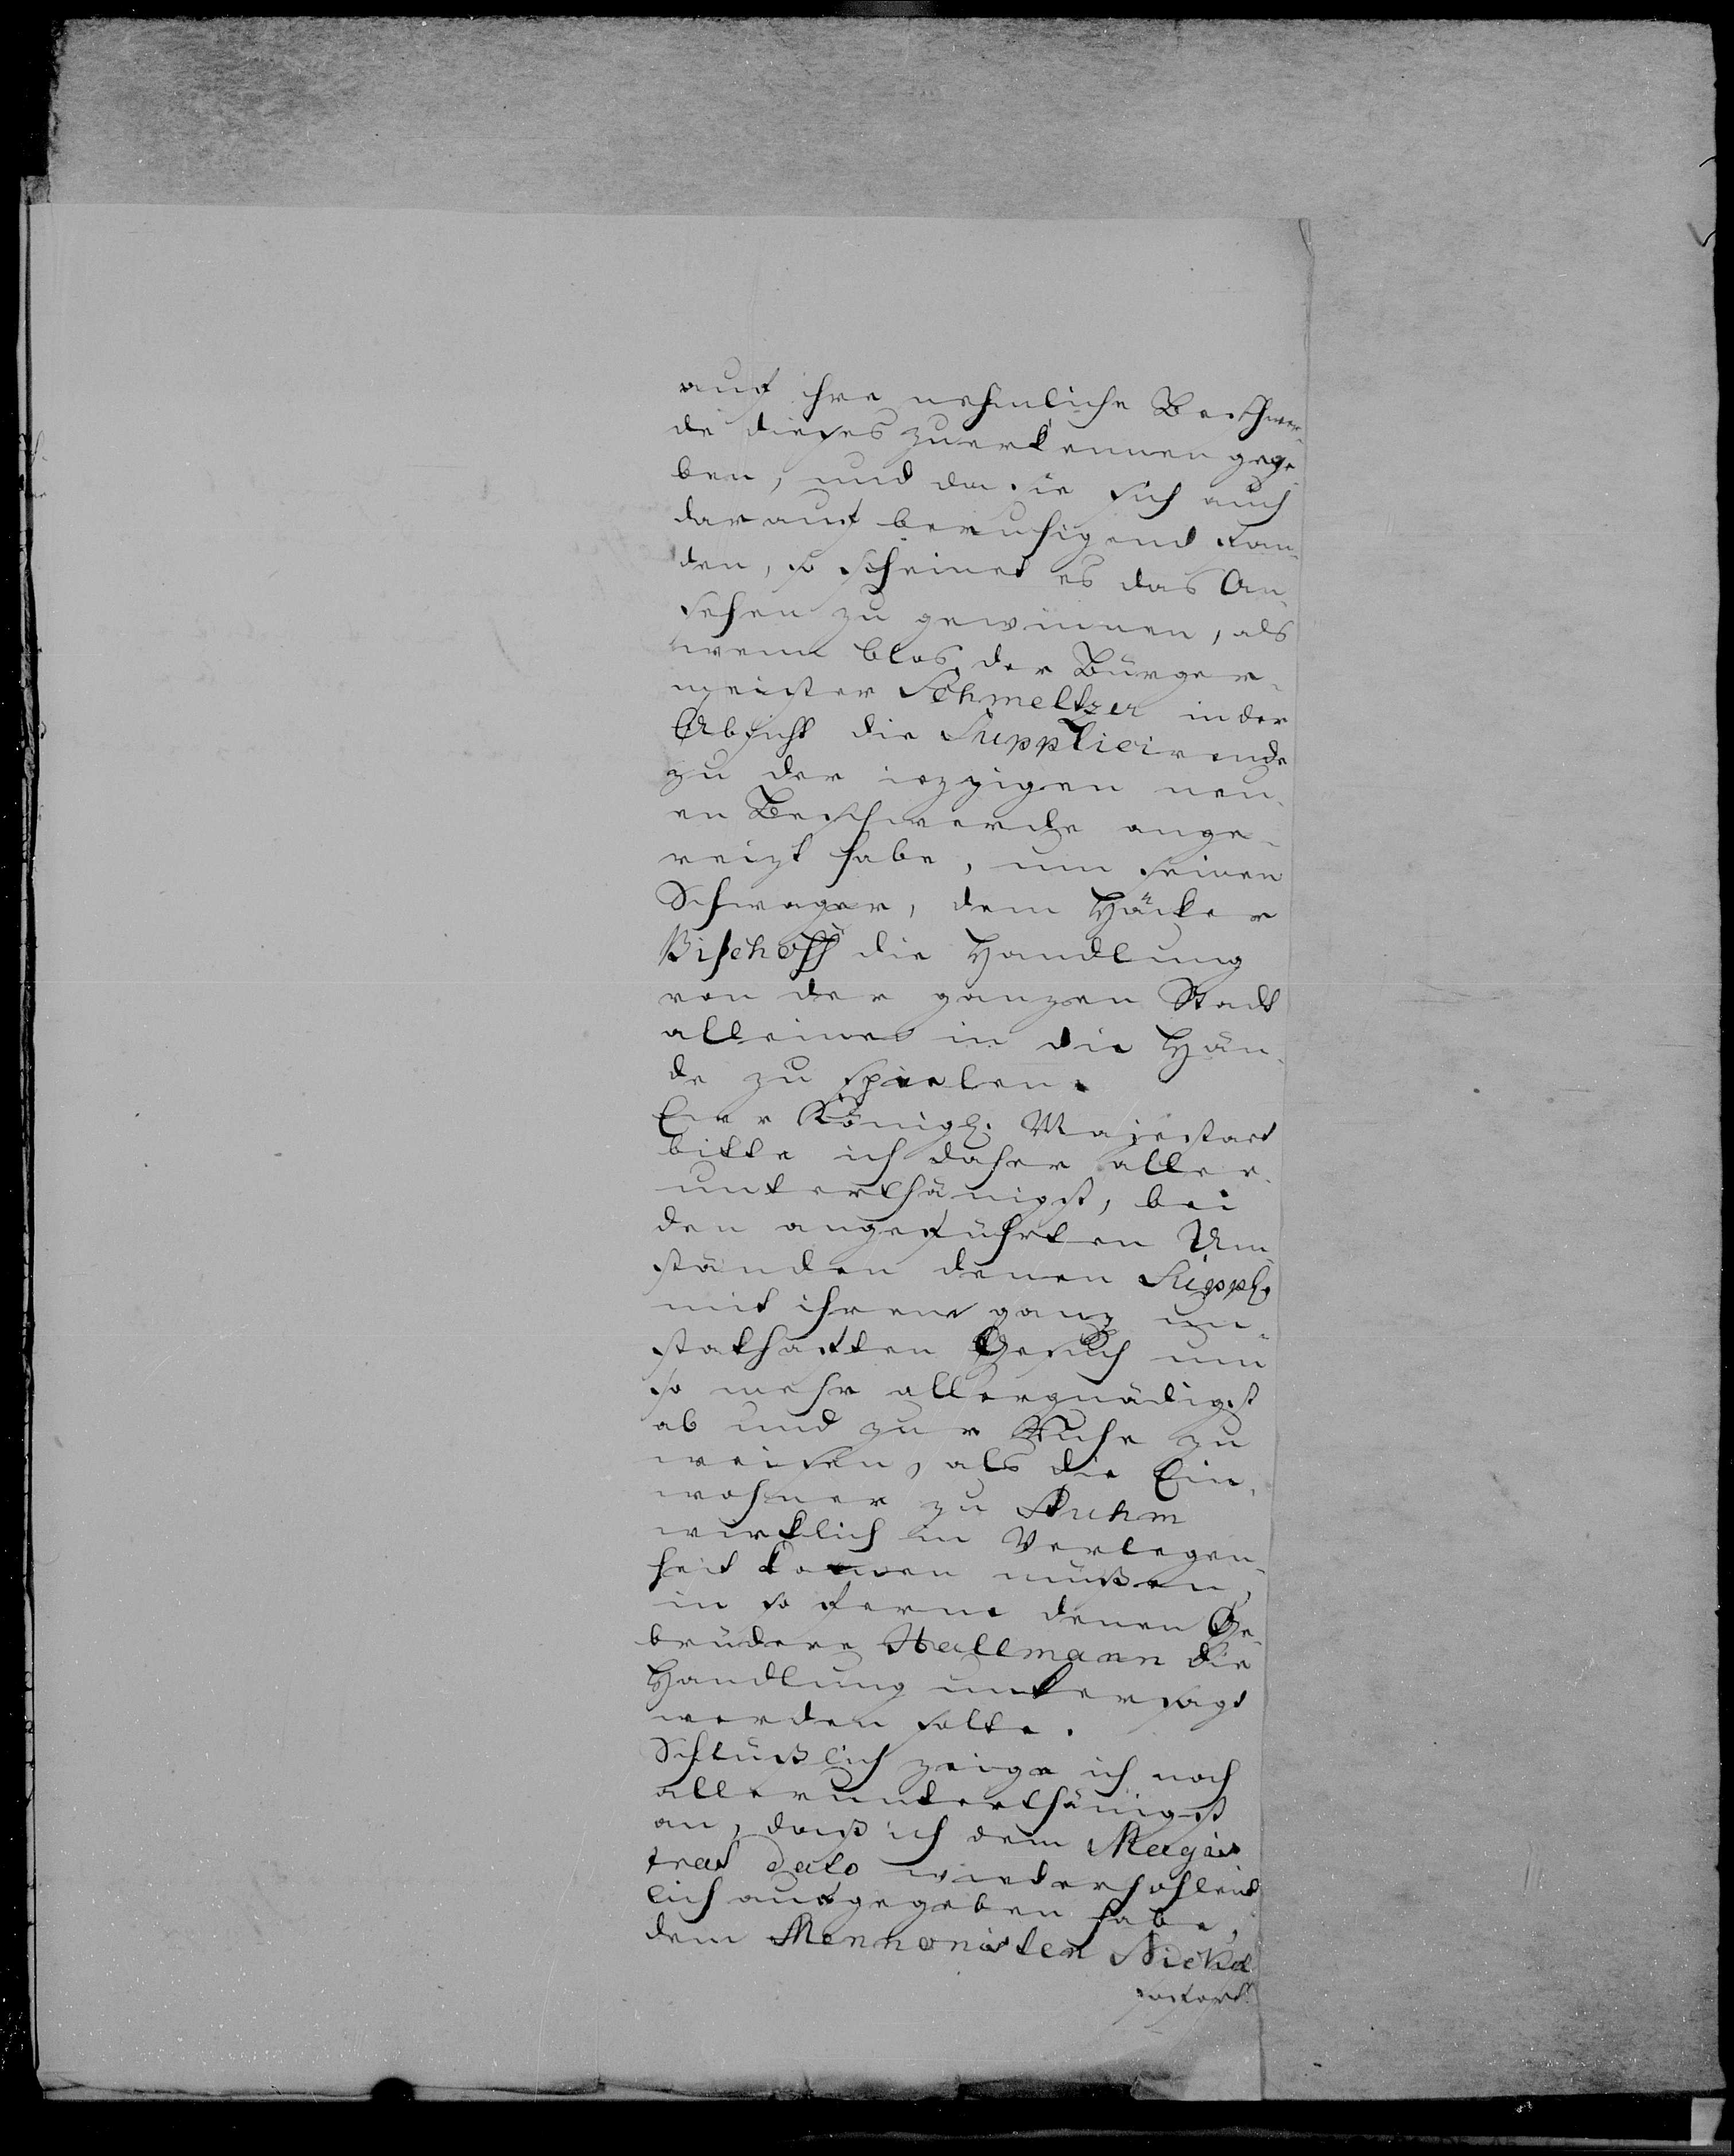 auf ihre nehmliche Beschwer-
de dieses zuerkennen gege-
ben, und da sie sich auch
darauf beruhigend fan-
den, so scheinet es das An-
sehen zu gewinnen, als
wenn blos der Bürger-
meister Schmeltzer in der
Absicht die Supplicirende
zu der iezzigen neu-
en Beschwerde ange-
reizt habe, um seinen
Schwager, dem Häcker
Bischoff die Handlung
von der ganzen Stadt
alleine in die Hän-
de zu spielen.
Eur Königl. Majestaet
bitte ich daher aller-
unterthänigst, bei
den angeführten Um-
ständen denen Suppl.
mit ihrem ganz un-
stathaften Gesuch um
so mehr allergnädigst
ab und zur Ruhe zu
weisen, als die Ein-
wohner zu Stuhm
würklich in Verlegen-
heit komen müßen,
in so ferne denen Ge-
brüdere Hallmann die
Handlung untersagt
werden solte.
Schlüßlich zeige ich noch
allerunterthänigst
an, daß ich dem Magis
trat dato wiederhohlend
lich aufgegeben habe,
dem Mennonisten Nickel